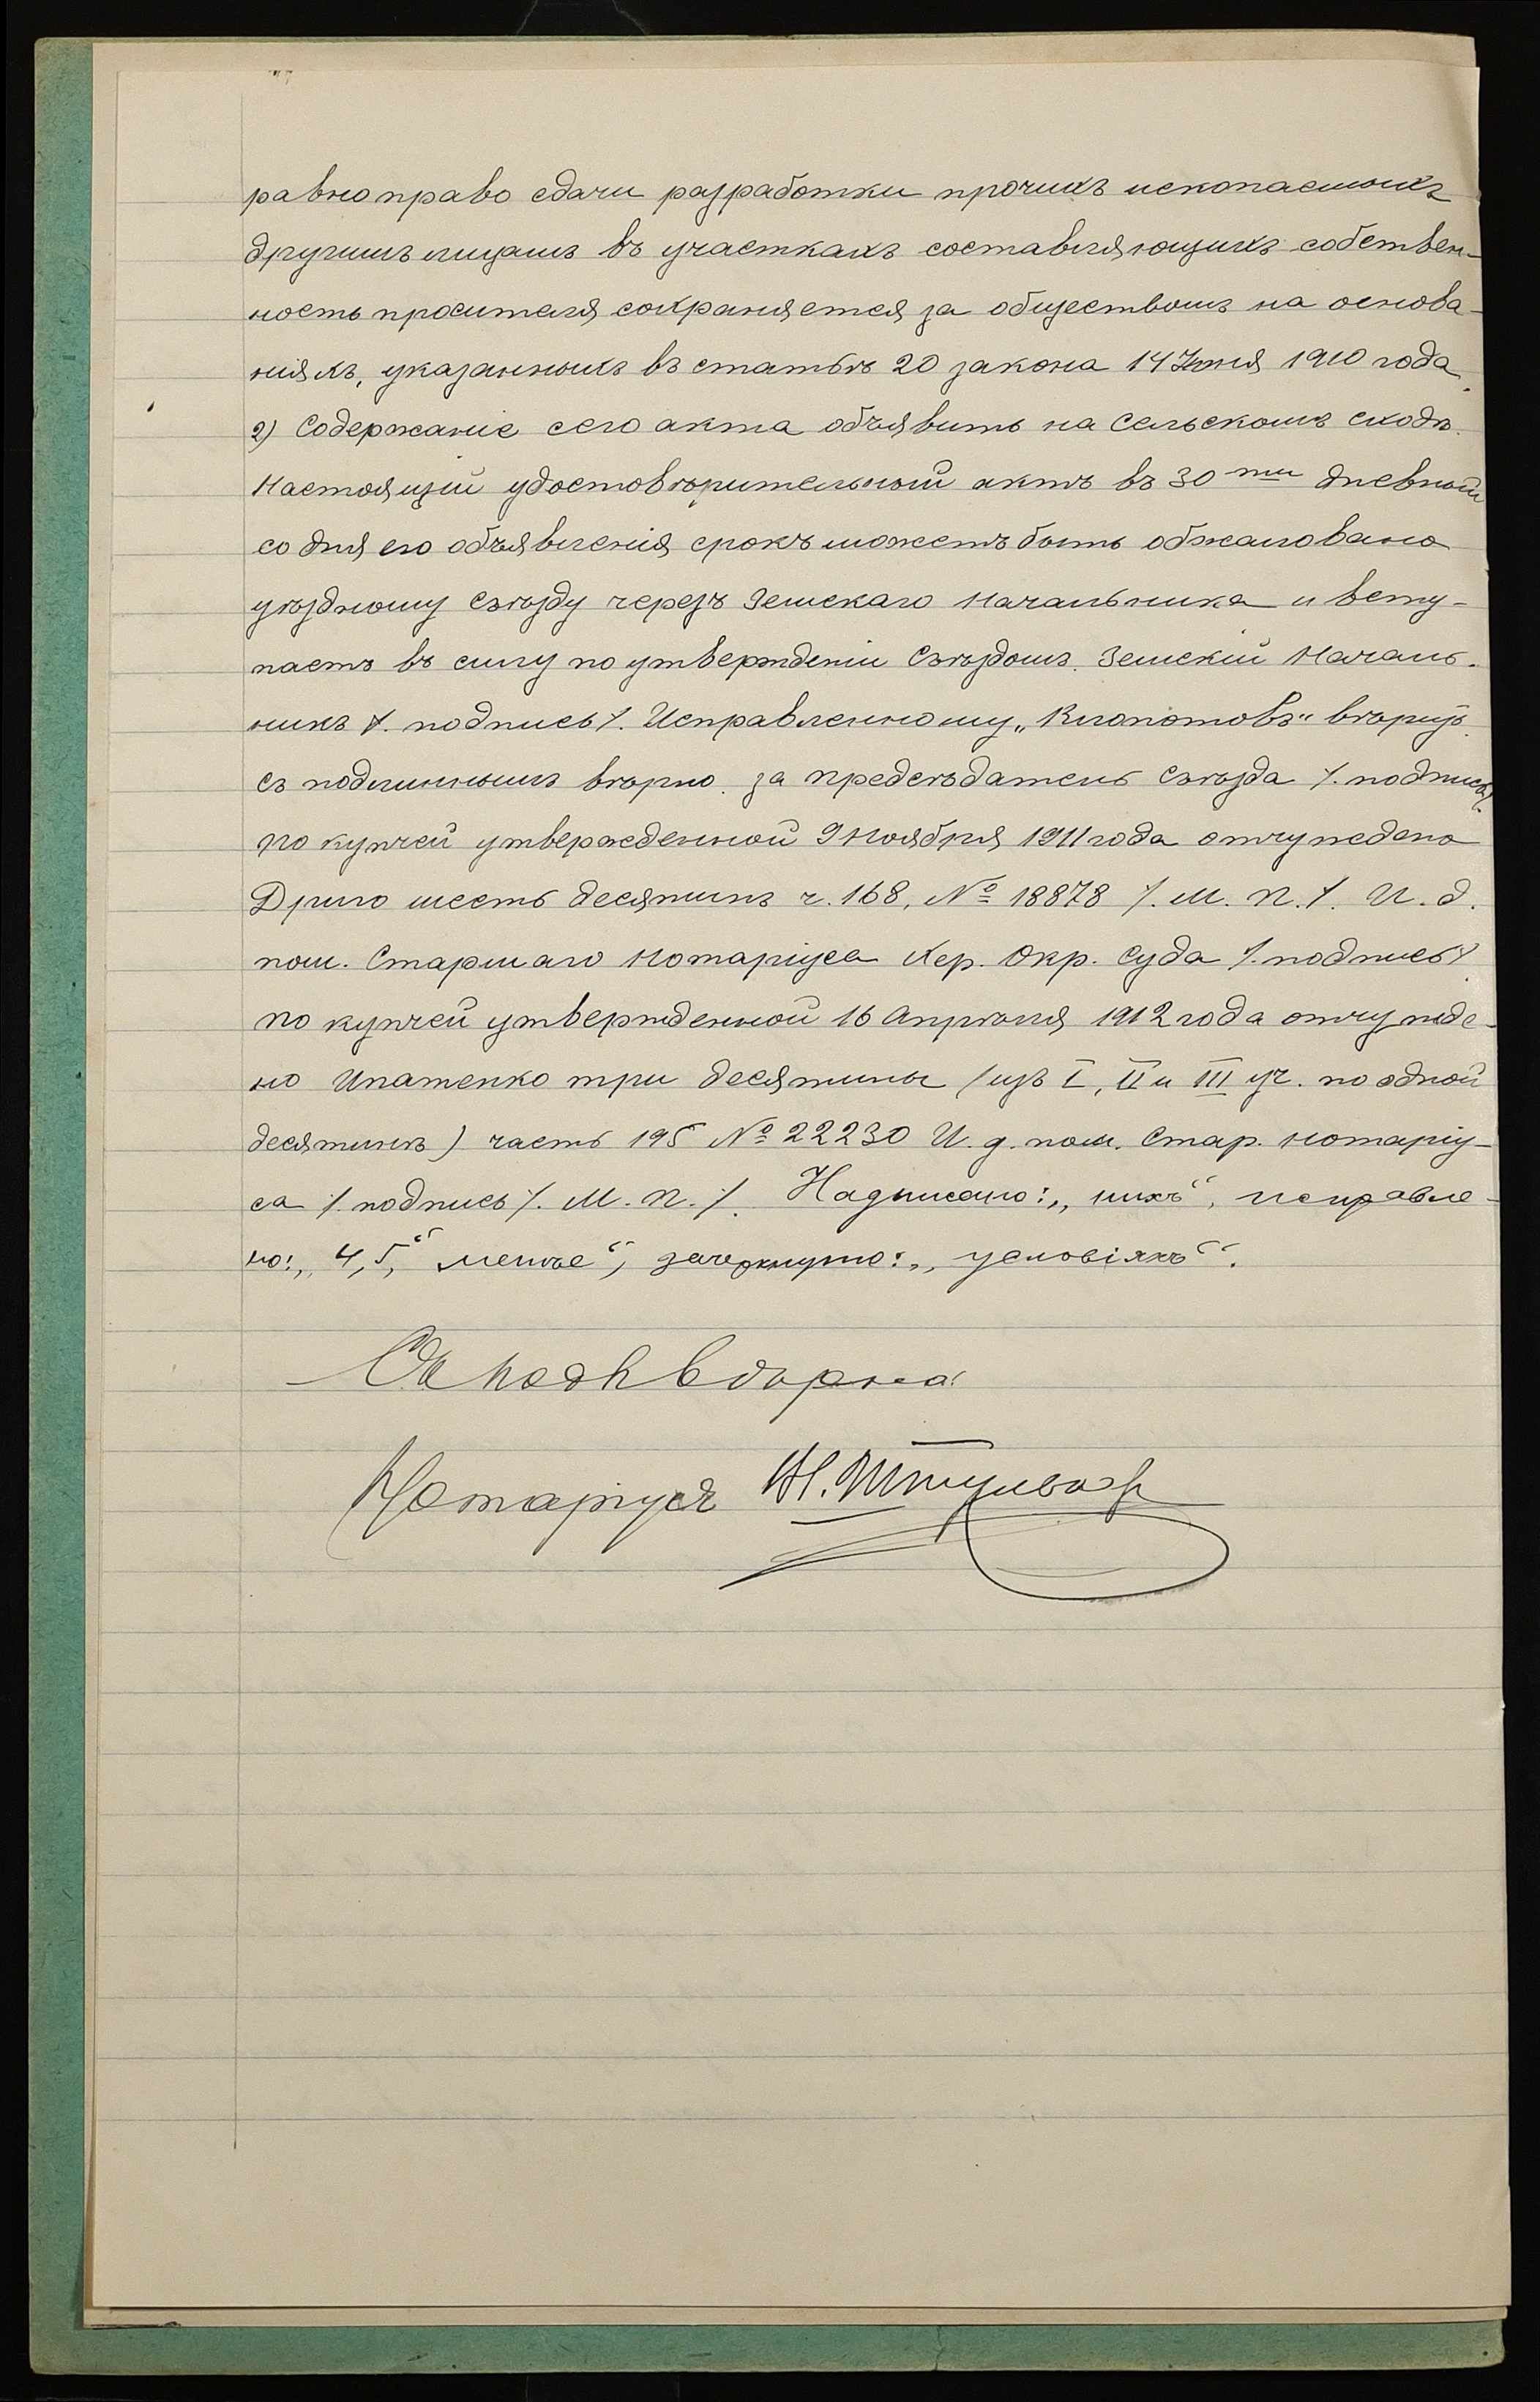 равно право сдачи разработки прочихъ ископаемыхъ
другимъ лицамъ въ участкахъ составляющихъ собствен-
ность просителя, сохраняется за обществомъ на основа-
нiяхъ, указанныхъ въ статьѣ 20 закона 14 Iюня 1910 года.
2) Содержанiе сего акта объявить на сельскомъ сходѣ.
Настоящiй удостовѣрительный актъ въ 30 ти дневный
со дня его объявленiя срокъ можетъ быть обжаловано
уѣздному съѣзду черезъ Земскаго Начальника и всту-
паетъ въ силу по утвержденiи Съѣздомъ. Земскiй Началь-
никъ /. подпись /. Исправленному „Клопотовъ" вѣрить.
съ подлиннымъ вѣрно. за предсѣдатель Съѣзда /. подпись /.
по купчей утвержденной 9 Ноября 1911 года отчуждено
Дриго шесть десятинъ ч. 168, № 18878 /. М. П. /. И. д.
пом. Старшаго Нотарiуса Хер. Окр. Суда /. подпись /.
по купчей утвержденной 16 Апрѣля 1912 года отчужде-
но Ипатенко три десятины (изъ I, II и III уч. по одной
десятинѣ) часть 195 № 22230 И. д. пом. Стар. Нотарiу-
са /. подпись /. М. П. /. Надписано: „нихъ", исправле-
но: „4, 5," менѣе", зачеркнуто: „условiяхъ".
вѣрна:
Нотарiусъ